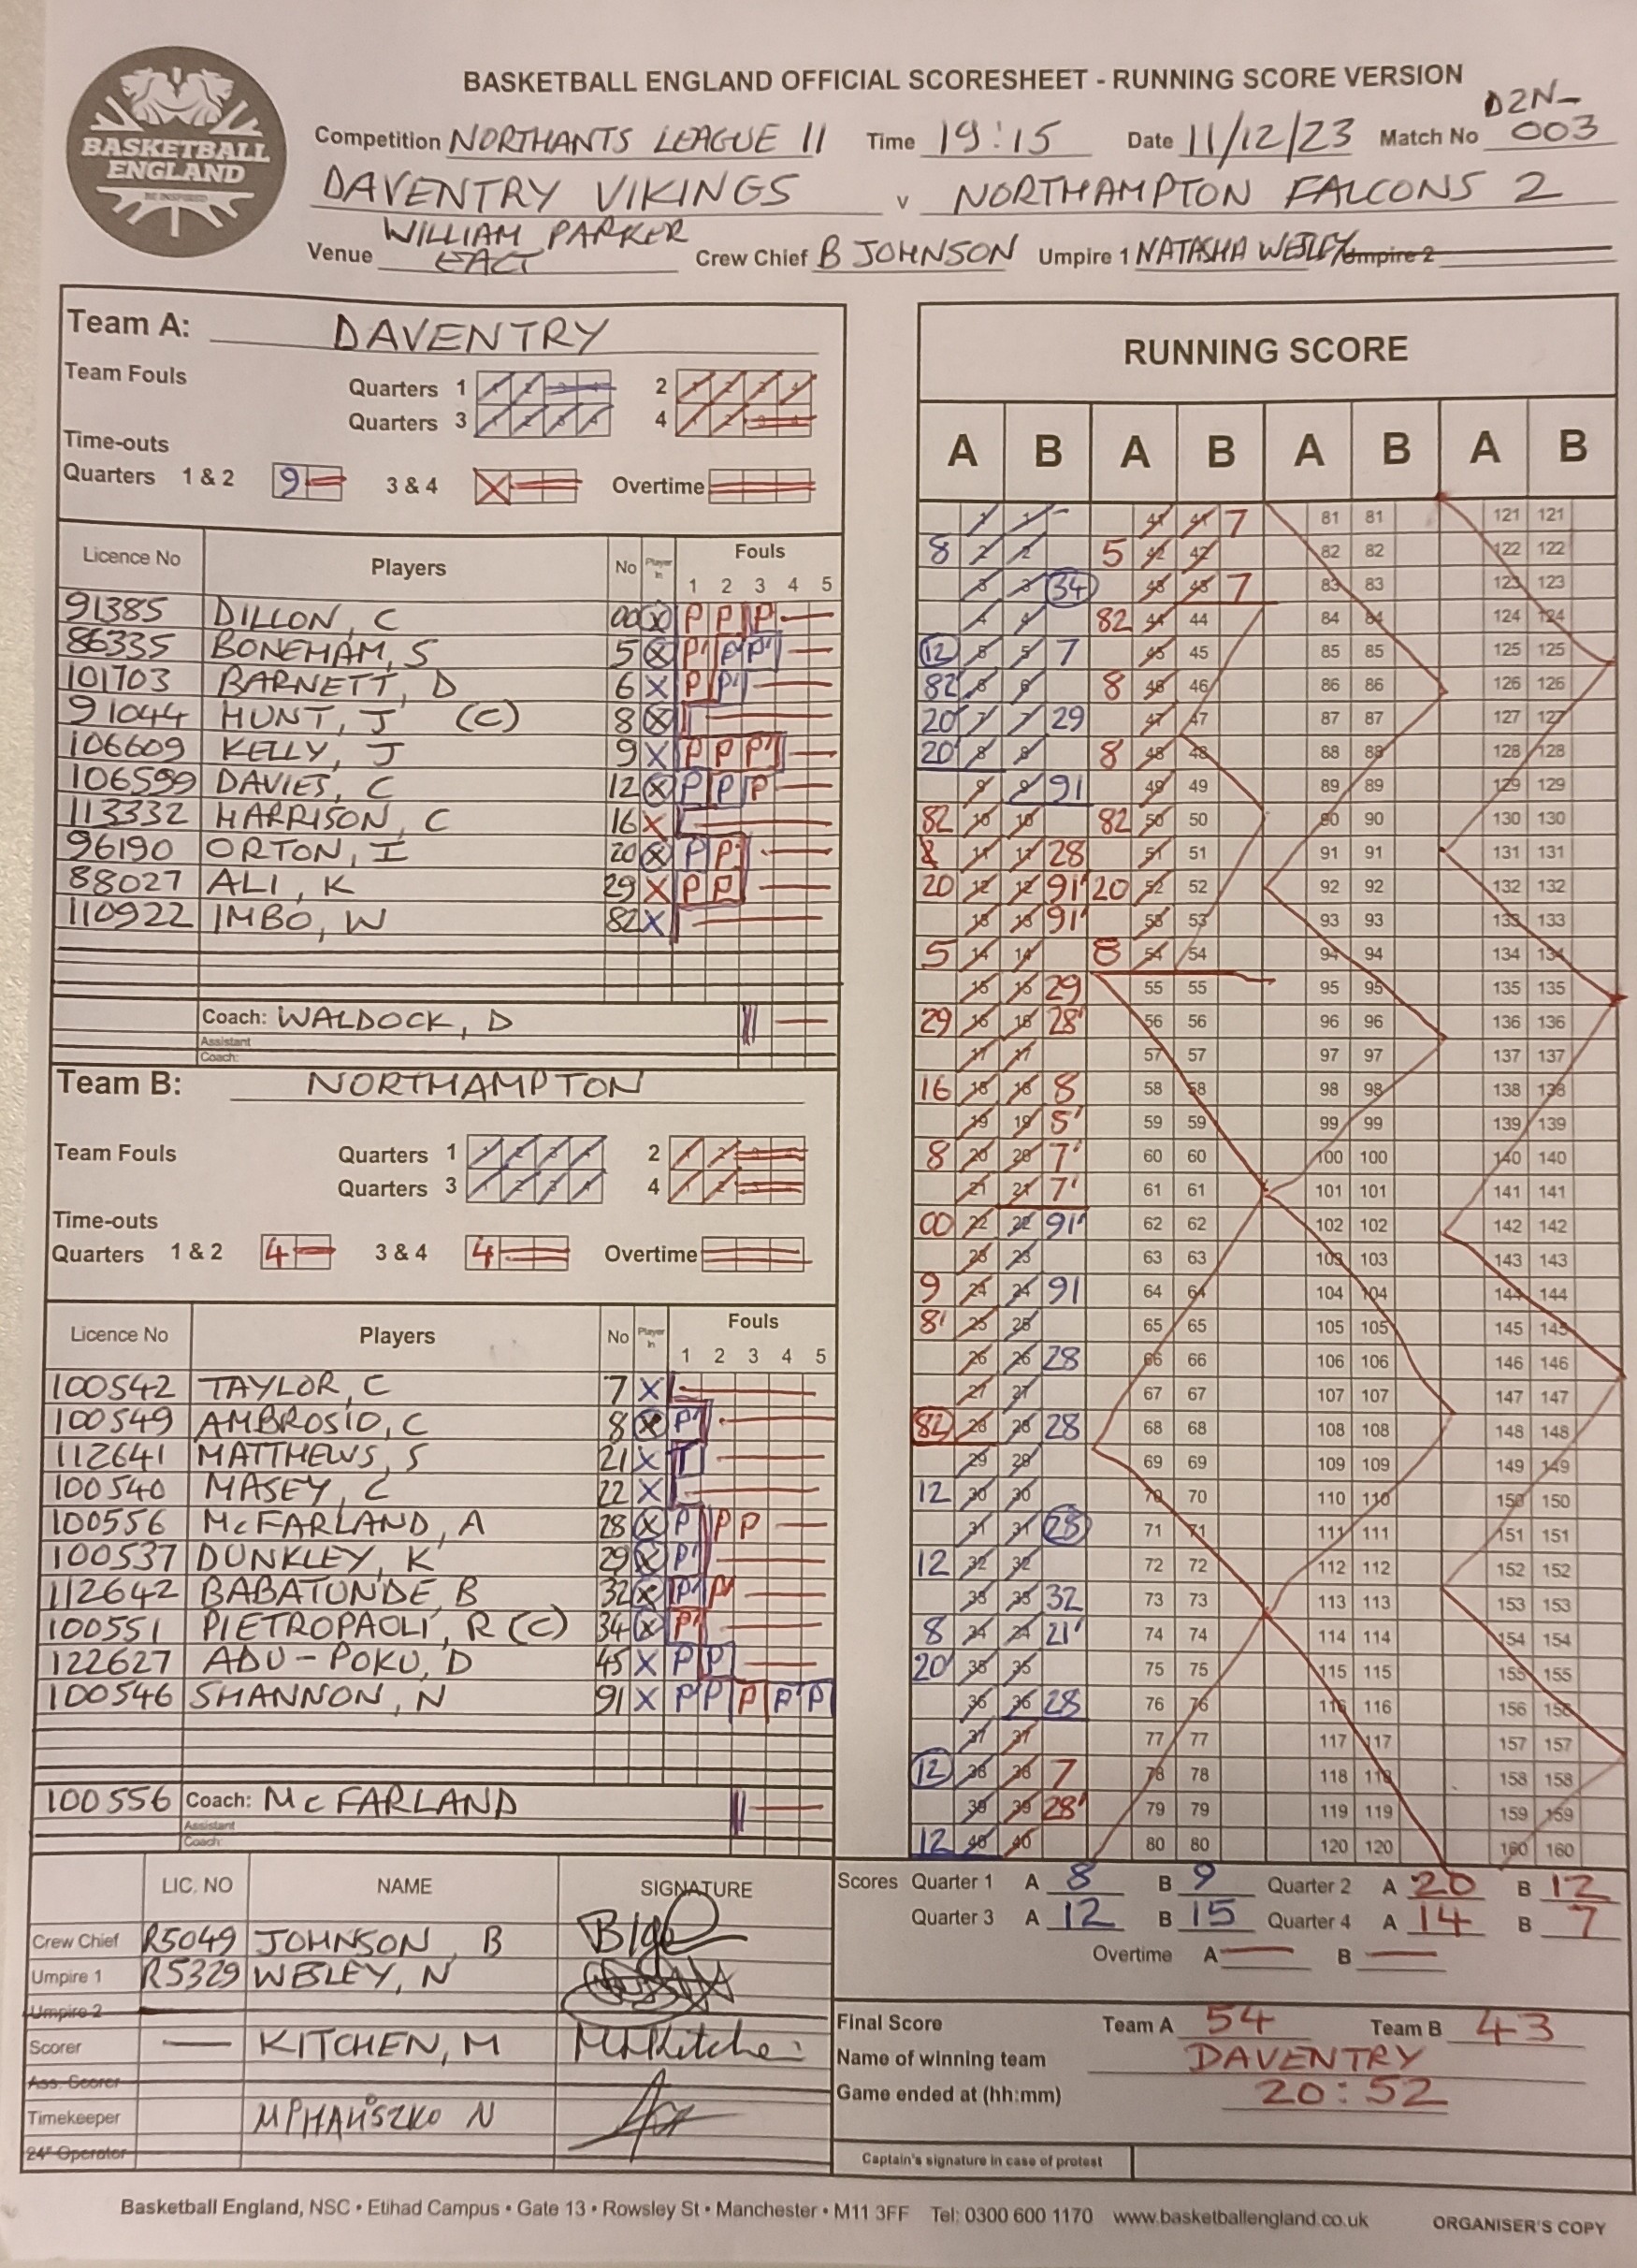 BASKETBALL ENGLAND
BE INSPIRED
BASKETBALL ENGLAND OFFICIAL SCORESHEET - RUNNING SCORE VERSION
Competition NORTHANTS LEAGUE II Time 19:15 Date 11/12/23 Match No D2N-003
DAVENTRY VIKINGS v NORTHAMPTON FALCONS 2
Venue WILLIAM PARKER Crew Chief B JOHNSON Umpire 1 NATASHA WESLEY Umpire 2
Team A: DAVENTRY
Team Fouls Quarters 1 1 2 3 4 2 1 2 3 4
Quarters 3 1 2 3 4 4 1 2 3 4
Time-outs
Quarters 1 & 2 9 3 & 4 X Overtime
Licence No Players No Player In Fouls
1 2 3 4 5
91385 DILLON, C 00 X P P P
86335 BONEHAM, S 5 X P1 P P1
101703 BARNETT, D 6 X P P1
91044 HUNT, J (C) 8 X
106609 KELLY, J 9 X P P P1
106599 DAVIES, C 12 X P P P
113332 HARRISON, C 16 X
96190 ORTON, I 20 X P P
88027 ALI, K 29 X P P
110922 IMBO, W 82 X
Coach: WALDOCK, D
Assistant
Coach:
Team B: NORTHAMPTON
Team Fouls Quarters 1 1 2 3 4 2 1 2 3 4
Quarters 3 1 2 3 4 4 1 2 3 4
Time-outs
Quarters 1 & 2 4 3 & 4 4 Overtime
Licence No Players No Player In Fouls
1 2 3 4 5
100542 TAYLOR, C 7 X
100549 AMBROSIO, C 8 X P1
112641 MATTHEWS, S 21 X T
100540 MASEY, C 22 X
100556 McFARLAND, A 28 X P P P
100537 DUNKLEY, K 29 X P1
112642 BABATUNDE, B 32 X P1 P1
100551 PIETROPAOLI, R (C) 34 X P1
122627 ADU-POKU, D 45 X P P
100546 SHANNON, N 91 X P P P P P
100556 Coach: McFARLAND
Assistant
Coach:
LIC. NO NAME SIGNATURE
Crew Chief R5049 JOHNSON, B
Umpire 1 R5329 WESLEY, N
Umpire 2
Scorer KITCHEN, M M Kitchen
Ass. Scorer
Timekeeper
24" Operator
RUNNING SCORE
A B A B A B A B
1 1 41 41 7 81 81 121 121
8 2 2 5 42 42 82 82 122 122
3 3 34 43 43 7 83 83 123 123
4 4 82 44 44 84 84 124 124
12 5 5 7 45 45 85 85 125 125
82 6 6 8 46 46 86 86 126 126
20 7 7 29 47 47 87 87 127 127
20 8 8 8 48 48 88 88 128 128
9 9 91 49 49 89 89 129 129
82 10 10 82 50 50 90 90 130 130
8 11 11 28 51 51 91 91 131 131
20 12 12 91 20 52 52 92 92 132 132
13 13 91 53 53 93 93 133 133
5 14 14 8 54 54 94 94 134 134
15 15 29 55 55 95 95 135 135
29 16 16 28 56 56 96 96 136 136
17 17 57 57 97 97 137 137
16 18 18 8 58 58 98 98 138 138
19 19 59 59 99 99 139 139
8 20 20 7 60 60 100 100 140 140
21 21 7 61 61 101 101 141 141
00 22 22 91 62 62 102 102 142 142
23 23 63 63 103 103 143 143
9 24 24 91 64 64 104 104 144 144
8 25 25 65 65 105 105 145 145
26 26 28 66 66 106 106 146 146
27 27 67 67 107 107 147 147
82 28 28 28 68 68 108 108 148 148
29 29 69 69 109 109 149 149
12 30 30 70 70 110 110 150 150
31 31 71 71 111 111 151 151
12 32 32 72 72 112 112 152 152
33 33 32 73 73 113 113 153 153
8 34 34 21 74 74 114 114 154 154
20 35 35 75 75 115 115 155 155
36 36 28 76 76 116 116 156 156
37 37 77 77 117 117 157 157
12 38 38 7 78 78 118 118 158 158
39 39 28 79 79 119 119 159 159
12 40 40 80 80 120 120 160 160
Scores Quarter 1 A 8 B 9 Quarter 2 A 20 B 12
Quarter 3 A 12 B 15 Quarter 4 A 14 B 7
Overtime A B
Final Score Team A 54 Team B 43
Name of winning team DAVENTRY
Game ended at (hh:mm) 20:52
Captain's signature in case of protest
Basketball England, NSC • Etihad Campus • Gate 13 • Rowsley St • Manchester • M11 3FF Tel: 0300 600 1170 www.basketballengland.co.uk ORGANISER'S COPY